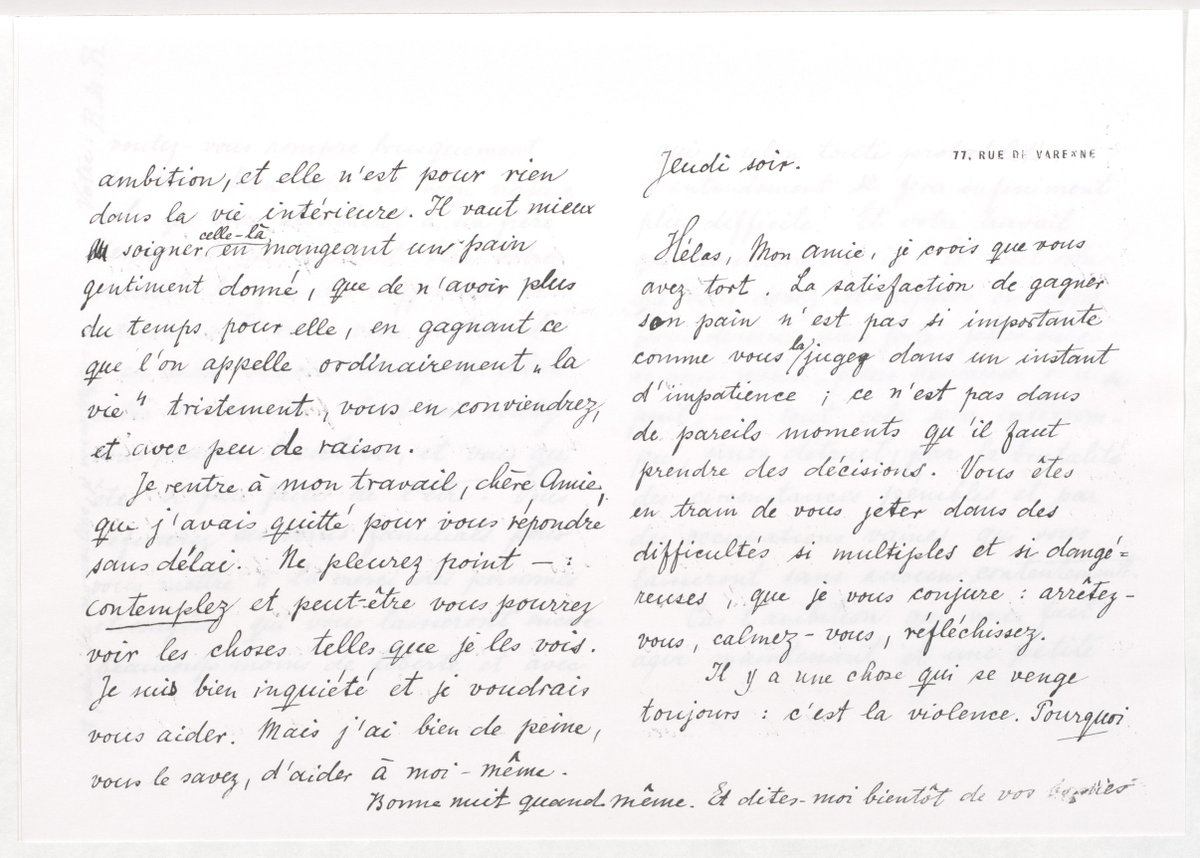 77, RUE DE VARENNE
Jeudi soir.
Hélas, Mon amie, je crois que vous
avez tort. La satisfaction de gagner
son pain n'est pas si importante
comme vous la jugez dans un instant
d'impatience ; ce n'est pas dans
de pareils moments qu'il faut
prendre des décisions. Vous êtes
en train de vous jeter dans des
difficultés si multiples et si dangé=
reuses, que je vous conjure : arrêtez-
vous, calmez-vous, réfléchissez.
Il y a une chose qui se venge
toujours : c'est la violence. Pourquoi
ambition, et elle n'est pour rien
dans la vie intérieure. Il vaut mieux
soigner celle-là en mangeant un pain
gentiment donné, que de n'avoir plus
du temps pour elle, en gagnant ce
que l'on appelle ordinairement „la
vie" tristement, vous en conviendrez,
et avec peu de raison.
Je rentre à mon travail, chère Amie,
que j'avais quitté pour vous répondre
sans délai. Ne pleurez point — :
contemplez et peut-être vous pourrez
voir les choses telles que je les vois.
Je suis bien inquiété et je voudrais
vous aider. Mais j'ai bien de peine,
vous le savez, d'aider à moi-même.
Bonne nuit quand même. Et dites-moi bientôt de vos